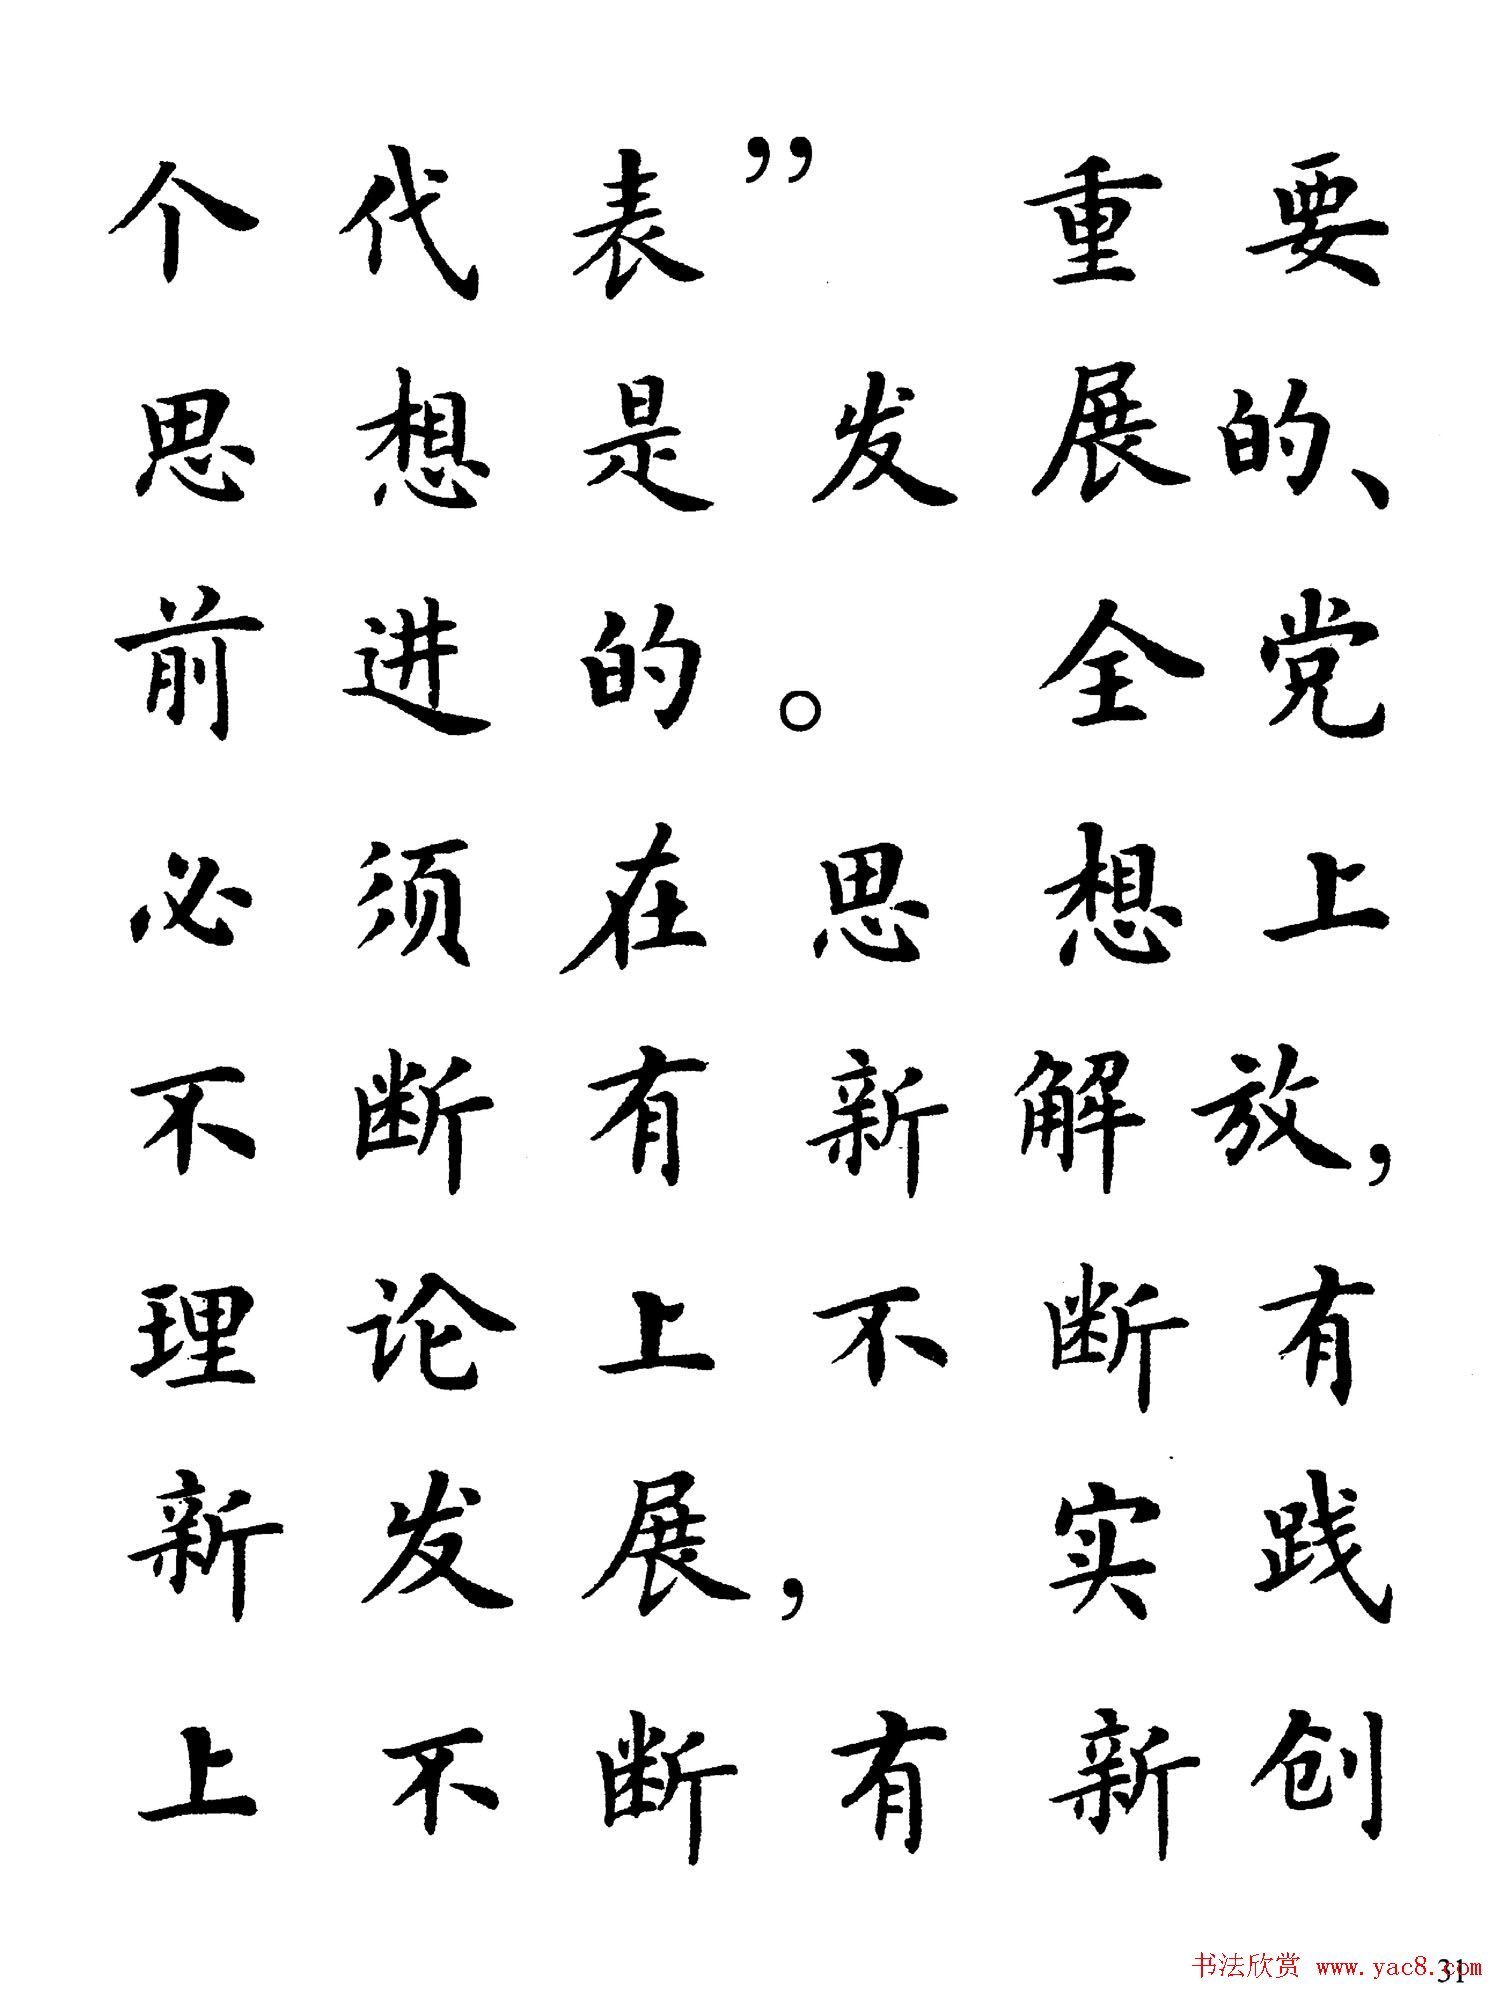 个代表”重要
思想是发展的、
前进的。全党
必须在思想上
不断有新解放，
理论上不断有
新发展，实践
上不断有新创
书法欣赏 www.yac8.com
31